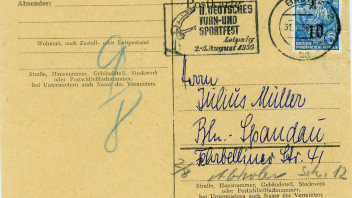 Absender:
Postkarte
II. DEUTSCHES
TURN- UND
SPORTFEST
Leipzig
2.-5. August 1956
10
Wohnort, auch Zustell- oder Leitpostamt
Straße, Hausnummer, Gebäudeteil, Stockwerk
oder Postschließfachnummer,
bei Untermietern auch Name des Vermieters
9/8
Herrn
Julius Müller
Bln.- Spandau
Fehrbelliner Str. 41
2/8
Straße, Hausnummer, Gebäudeteil, Stockwerk
oder Postschließfachnummer,
bei Untermietern auch Name des Vermieters